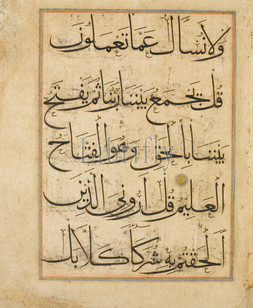 ولا نسأل عما تعملون
قل يجمع بيننا ربنا ثم يفتح
بيننا بالحق وهو الفتاح
العليم قل أروني الذين
ألحقتم به شركاء كلا بل